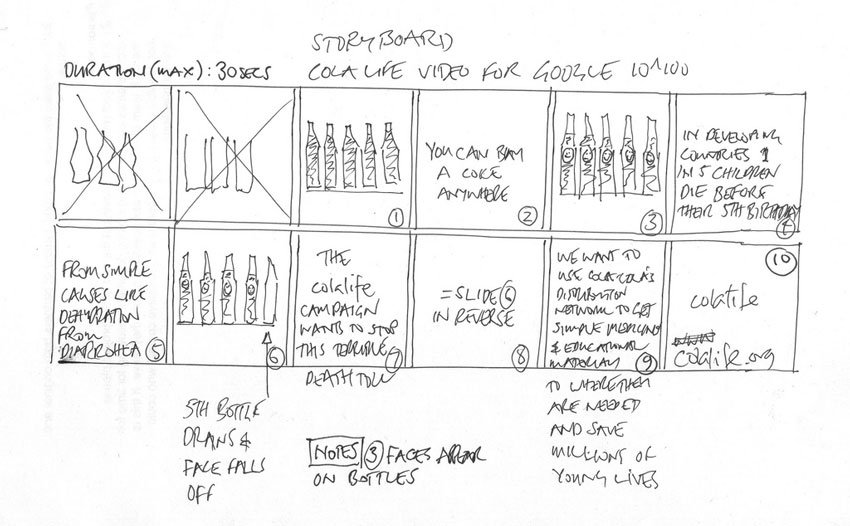 STORYBOARD
DURATION (MAX): 30SECS
COLALIFE VIDEO FOR GOOGLE 10^100
1
YOU CAN BUY
A COKE
ANYWHERE
2
3
IN DEVELOPING
COUNTRIES 1
IN 5 CHILDREN
DIE BEFORE
THEIR 5TH BIRTHDAY
4
FROM SIMPLE
CAUSES LIKE
DEHYDRATION
FROM
DIARRHOEA 5
6
5TH BOTTLE
DRAINS &
FACE FALLS
OFF
THE
colalife
CAMPAIGN
WANTS TO STOP
THIS TERRIBLE
DEATH TOLL
7
= SLIDE 6
IN REVERSE
8
WE WANT TO
USE COLA COLA'S
DISTRIBUTION
NETWORK TO GET
SIMPLE MEDICINE
& EDUCATIONAL
MATERIAL
9
TO WHERE THEY
ARE NEEDED
AND SAVE
MILLIONS OF
YOUNG LIVES
10
colalife
colalife.org
NOTES 3 FACES APPEAR
ON BOTTLES